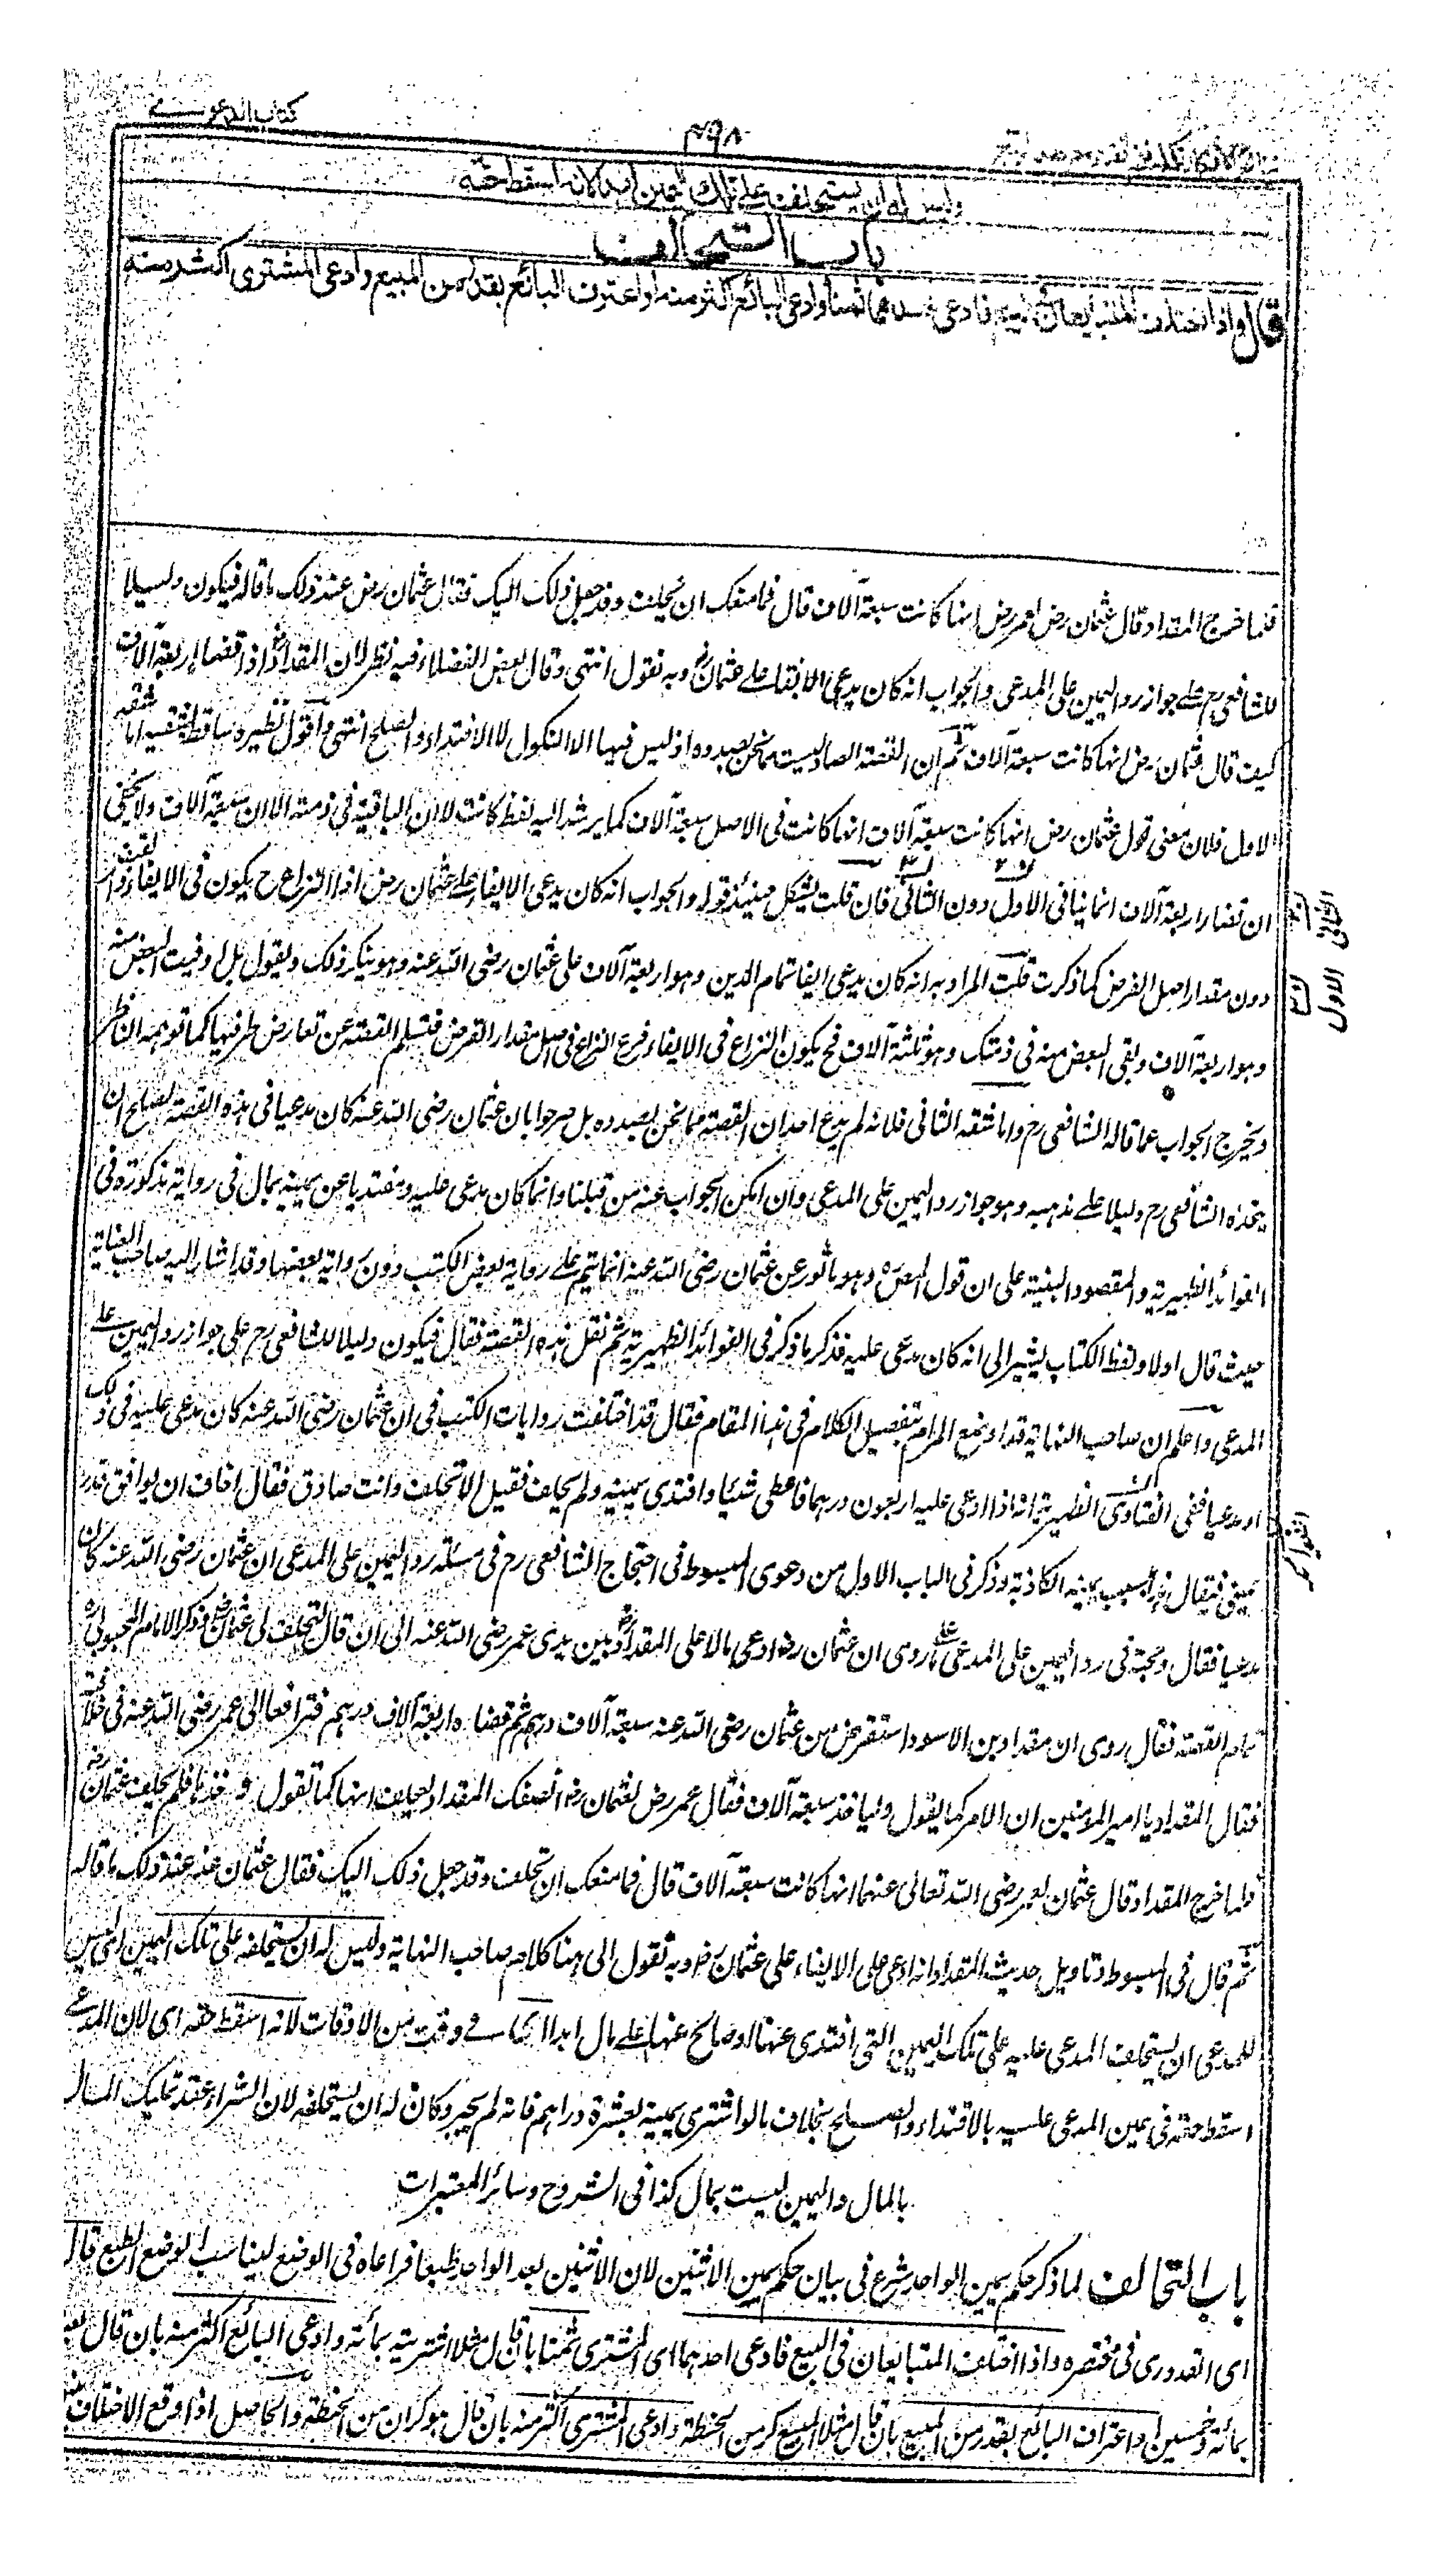 كتاب الدعوى
٣٩٨
وليس له ان يستحلفه على تلك اليمين ابدا لانه اسقط حقه
باب التحالف
قال واذا اختلف المتبايعان فى البيع فادعى احدهما ثمنا وادعى البائع اكثر منه او اعترف البائع بقدر من المبيع وادعى المشترى اكثر منه
فلما خرج المقداد قال عثمان رض لعمر رض انها كانت سبعة آلاف قال فما منعك ان تحلف وقد جعل ذلك اليك فقال عثمان رض عند ذلك ما قاله فيكون دليلا
للشافعى رح على جواز رد اليمين على المدعى والجواب انه كان يدعى الايفاء على عثمان رض وبه نقول انتهى وقال بعض الفضلاء فيه نظر لان المقداد رض اذا قضا اربعة آلاف
كيف قال عثمان رض انها كانت سبعة آلاف ثم ان القصة ايضا ليست مما نحن بصدده اذ ليس فيها الا النكول لا الافتداء والصلح انتهى واقول نظيره ساقط بشقيه اما شقه
الاول فلان معنى قول عثمان رض انها كانت سبعة آلاف انها كانت فى الاصل سبعة آلاف كما يرشد اليه لفظ كانت لا ان الباقية فى ذمته الآن سبعة آلاف ولا يخفى
ان قضاء اربعة آلاف انما ينافى الاول دون الثانى فان قلت يشكل حينئذ قوله والجواب انه كان يدعى الايفاء على عثمان رض اذ النزاع ح يكون فى الايفاء
دون مقدار اصل القرض كما ذكرت قلت المراد به انه كان يدعى ايفاء تمام الدين وهو اربعة آلاف على عثمان رضى الله عنه وهو ينكر ذلك ويقول بل اوفيت البعض منه
وهو اربعة آلاف وبقى البعض منه فى ذمتك وهو ثلثة آلاف فح يكون النزاع فى الايفاء فرع النزاع فى اصل مقدار القرض فتسلم القصة عن تعارض طرفيها كما توهمه الناظر
ويخرج الجواب عما قاله الشافعى رح واما شقه الثانى فلانه لم يدع احد ان القصة مما نحن بصدده بل صرحوا بان عثمان رضى الله عنه كان مدعيا فى هذه القصة ليصلح ان
يتخذه الشافعى رح دليلا على مذهبه وهو جواز رد اليمين على المدعى وان امكن الجواب عنه من قبلنا وانما كان مدعى عليه ومفتديا عن يمينه بمال فى رواية مذكورة فى
الفوائد الظهيرية والمقصود البنية على ان قول المصره وهو ماثور عن عثمان رضى الله عنه انما يتم على رواية بعض الكتب دون رواية بعضها وقد اشار اليه صاحب العناية
حيث قال اولا ولفظ الكتاب يشير الى انه كان مدعى عليه فذكر ما ذكر فى الفوائد الظهيرية ثم نقل هذه القصة فقال فيكون دليلا للشافعى رح على جواز رد اليمين على
المدعى واعلم ان صاحب النهاية قد اوضح المرام بتفصيل الكلام فى هذا المقام فقال قد اختلفت روايات الكتب فى ان عثمان رضى الله عنه كان مدعى عليه فى ذلك
او مدعيا ففى الفتاوى الظهيرية انه اذا ادعى عليه اربعون درهما فاعطى شيئا وافتدى يمينه ولم يحلف فقيل الا تحلف وانت صادق فقال اخاف ان يوافق قدر
يمينى فيقال هذا بسبب يمينه الكاذبة وذكر فى الباب الاول من دعوى المبسوط فى احتجاج الشافعى رح فى مسئلة رد اليمين على المدعى ان عثمان رضى الله عنه كان
مدعيا فقال وحجته فى رد اليمين على المدعى ما روى ان عثمان رض ادعى مالا على المقداد رض بين يدى عمر رضى الله عنه الى ان قال لتحلف لى عثمان رض وذكر الامام المحبوبى ره
تمام القصة فقال روى ان مقداد بن الاسود استقرض من عثمان رضى الله عنه سبعة آلاف درهم ثم قضاه اربعة آلاف درهم فترافعا الى عمر رضى الله عنه فى خلافته
فقال المقداد يا امير المؤمنين ان الامر كما يقول وليأخذ سبعة آلاف فقال عمر رض لعثمان رض انصفك المقداد لتحلف انها كما تقول وخذها فلم يحلف عثمان رض
فلما خرج المقداد قال عثمان لعمر رضى الله تعالى عنهما انها كانت سبعة آلاف قال فما منعك ان تحلف وقد جعل ذلك اليك فقال عثمان عنه عند ذلك ما قاله
ثم قال فى المبسوط وتاويل حديث المقداد انه ادعى على الايفاء على عثمان رض وبه نقول الى هنا كلام صاحب النهاية وليس له ان يستحلفه على تلك اليمين اى ليس
للمدعى ان يستحلف المدعى عليه على تلك اليمين التى افتدى عنها او صالح عنها على مال ابدا اى فى وقت من الاوقات لانه اسقط حقه اى لان المدعى
اسقط حقه فى يمين المدعى عليه بالافتداء والصلح بخلاف ما لو اشترى يمينه بعشرة دراهم فانه لم يجز وكان له ان يستحلفه لان الشراء عقد تمليك المال
بالمال واليمين ليست بمال كذا فى الشروح وسائر المعتبرات
باب التحالف لما ذكر حكم يمين الواحد شرع فى بيان حكم يمين الاثنين لان الاثنين بعد الواحد طبعا فراعاه فى الوضع ليناسب الوضع الطبع قال
اى القدورى فى مختصره واذا اختلف المتبايعان فى البيع فادعى احدهما اى المشترى ثمنا بان قال مثلا اشتريته بمائة وادعى البائع اكثر منه بان قال بعته
بمائة وخمسين او اعترف البائع بقدر من المبيع بان قال مثلا المبيع كر من الحنطة وادعى المشترى اكثر منه بان قال هو كران من الحنطة والحاصل اذا وقع الاختلاف